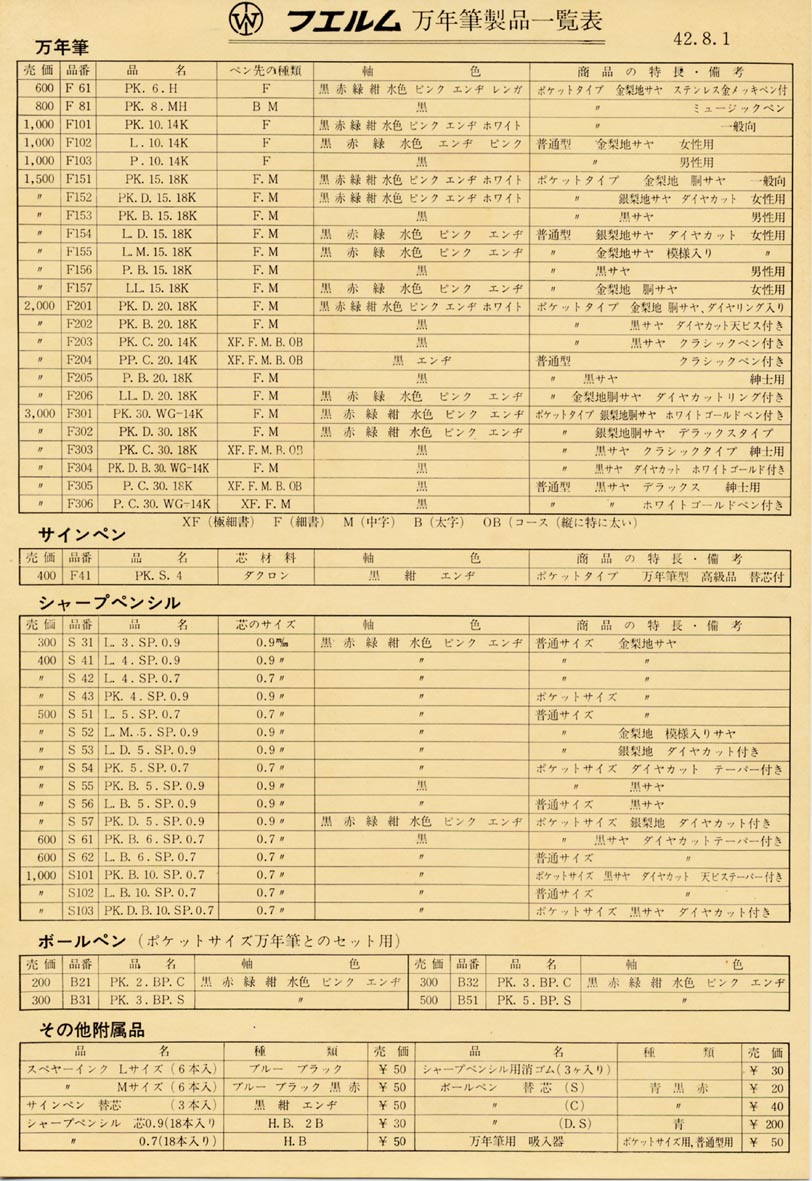 フエルム 万年筆製品一覧表
42.8.1
万年筆
売価 品番 品名 ペン先の種類 軸色 商品の特長・備考
600 F 61 PK. 6. H F 黒 赤 緑 紺 水色 ピンク エンヂ レンガ ポケットタイプ 金梨地サヤ ステンレス金メッキペン付
800 F 81 PK. 8. MH B M 黒 〃 ミュージックペン
1,000 F101 PK. 10. 14K F 黒 赤 緑 紺 水色 ピンク エンヂ ホワイト 〃 一般向
1,000 F102 L. 10. 14K F 黒 赤 緑 水色 エンヂ ピンク 普通型 金梨地サヤ 女性用
1,000 F103 P. 10. 14K F 黒 〃 男性用
1,500 F151 PK. 15. 18K F. M 黒 赤 緑 紺 水色 ピンク エンヂ ホワイト ポケットタイプ 金梨地 胴サヤ 一般向
〃 F152 PK. D. 15. 18K F. M 黒 赤 緑 紺 水色 ピンク エンヂ ホワイト 〃 銀梨地サヤ ダイヤカット 女性用
〃 F153 PK. B. 15. 18K F. M 黒 〃 黒サヤ 男性用
〃 F154 L. D. 15. 18K F. M 黒 赤 緑 水色 ピンク エンヂ 普通型 銀梨地サヤ ダイヤカット 女性用
〃 F155 L. M. 15. 18K F. M 黒 赤 緑 水色 ピンク エンヂ 〃 金梨地サヤ 模様入り 〃
〃 F156 P. B. 15. 18K F. M 黒 〃 黒サヤ 男性用
〃 F157 LL. 15. 18K F. M 黒 赤 緑 水色 ピンク エンヂ 〃 金梨地 胴サヤ 女性用
2,000 F201 PK. D. 20. 18K F. M 黒 赤 緑 紺 水色 ピンク エンヂ ホワイト ポケットタイプ 金梨地 胴サヤ、ダイヤリング入り
〃 F202 PK. B. 20. 18K F. M 黒 〃 黒サヤ ダイヤカット天ビス付き
〃 F203 PK. C. 20. 14K XF. F. M. B. OB 黒 〃 黒サヤ クラシックペン付き
〃 F204 PP. C. 20. 14K XF. F. M. B. OB 黒 エンヂ 普通型 クラシックペン付き
〃 F205 P. B. 20. 18K F. M 黒 〃 黒サヤ 紳士用
〃 F206 LL. D. 20. 18K F. M 黒 赤 緑 水色 ピンク エンヂ 〃 金梨地胴サヤ ダイヤカットリング付き
3,000 F301 PK. 30. WG-14K F. M 黒 赤 緑 紺 水色 ピンク エンヂ ポケットタイプ 銀梨地胴サヤ ホワイトゴールドペン付き
〃 F302 PK. D. 30. 18K F. M 黒 赤 緑 紺 水色 ピンク エンヂ 〃 銀梨地胴サヤ デラックスタイプ
〃 F303 PK. C. 30. 18K XF. F. M. B. OB 黒 〃 黒サヤ クラシックタイプ 紳士用
〃 F304 PK. D. B. 30. WG-14K F. M 黒 〃 黒サヤ ダイヤカット ホワイトゴールド付き
〃 F305 P. C. 30. 18K XF. F. M. B. OB 黒 普通型 黒サヤ デラックス 紳士用
〃 F306 P. C. 30. WG-14K XF. F. M 黒 〃 〃 ホワイトゴールドペン付き
XF（極細書） F（細書） M（中字） B（太字） OB（コース（縦に特に太い）
サインペン
売価 品番 品名 芯材料 軸色 商品の特長・備考
400 F41 PK. S. 4 ダクロン 黒 紺 エンヂ ポケットタイプ 万年筆型 高級品 替芯付
シャープペンシル
売価 品番 品名 芯のサイズ 軸色 商品の特長・備考
300 S 31 L. 3. SP. 0.9 0.9㎜ 黒 赤 緑 紺 水色 ピンク エンヂ 普通サイズ 金梨地サヤ
400 S 41 L. 4. SP. 0.9 0.9〃 〃 〃 〃
〃 S 42 L. 4. SP. 0.7 0.7〃 〃 〃 〃
〃 S 43 PK. 4. SP. 0.9 0.9〃 〃 ポケットサイズ 〃
500 S 51 L. 5. SP. 0.7 0.7〃 〃 普通サイズ 〃
〃 S 52 L. M. 5. SP. 0.9 0.9〃 〃 〃 金梨地 模様入りサヤ
〃 S 53 L. D. 5. SP. 0.9 0.9〃 〃 〃 銀梨地 ダイヤカット付き
〃 S 54 PK. 5. SP. 0.7 0.7〃 〃 ポケットサイズ ダイヤカット テーパー付き
〃 S 55 PK. B. 5. SP. 0.9 0.9〃 黒 〃 黒サヤ
〃 S 56 L. B. 5. SP. 0.9 0.9〃 〃 普通サイズ 黒サヤ
〃 S 57 PK. D. 5. SP. 0.9 0.9〃 黒 赤 緑 紺 水色 ピンク エンヂ ポケットサイズ 銀梨地 ダイヤカット付き
600 S 61 PK. B. 6. SP. 0.7 0.7〃 黒 〃 黒サヤ ダイヤカットテーパー付き
600 S 62 L. B. 6. SP. 0.7 0.7〃 〃 普通サイズ 〃
1,000 S101 PK. B. 10. SP. 0.7 0.7〃 〃 ポケットサイズ 黒サヤ ダイヤカット 天ビステーパー付き
〃 S102 L. B. 10. SP. 0.7 0.7〃 〃 普通サイズ 〃
〃 S103 PK. D. B. 10. SP. 0.7 0.7〃 〃 ポケットサイズ 黒サヤ ダイヤカット付き
ボールペン（ポケットサイズ万年筆とのセット用）
売価 品番 品名 軸色 売価 品番 品名 軸色
200 B21 PK. 2. BP. C 黒 赤 緑 紺 水色 ピンク エンヂ 300 B32 PK. 3. BP. C 黒 赤 緑 紺 水色 ピンク エンヂ
300 B31 PK. 3. BP. S 〃 500 B51 PK. 5. BP. S 〃
その他附属品
品名 種類 売価 品名 種類 売価
スペヤーインク Lサイズ（6本入） ブルー ブラック ¥ 50 シャープペンシル用消ゴム（3ヶ入り） ¥ 30
〃 Mサイズ（6本入） ブルー ブラック 黒 赤 ¥ 50 ボールペン 替芯（S） 青 黒 赤 ¥ 20
サインペン 替芯（3本入） 黒 紺 エンヂ ¥ 50 〃（C） 〃 ¥ 40
シャープペンシル 芯0.9（18本入り H. B. 2B ¥ 30 〃（D. S） 青 ¥ 200
〃 0.7（18本入り） H. B ¥ 50 万年筆用 吸入器 ポケットサイズ用、普通型用 ¥ 50